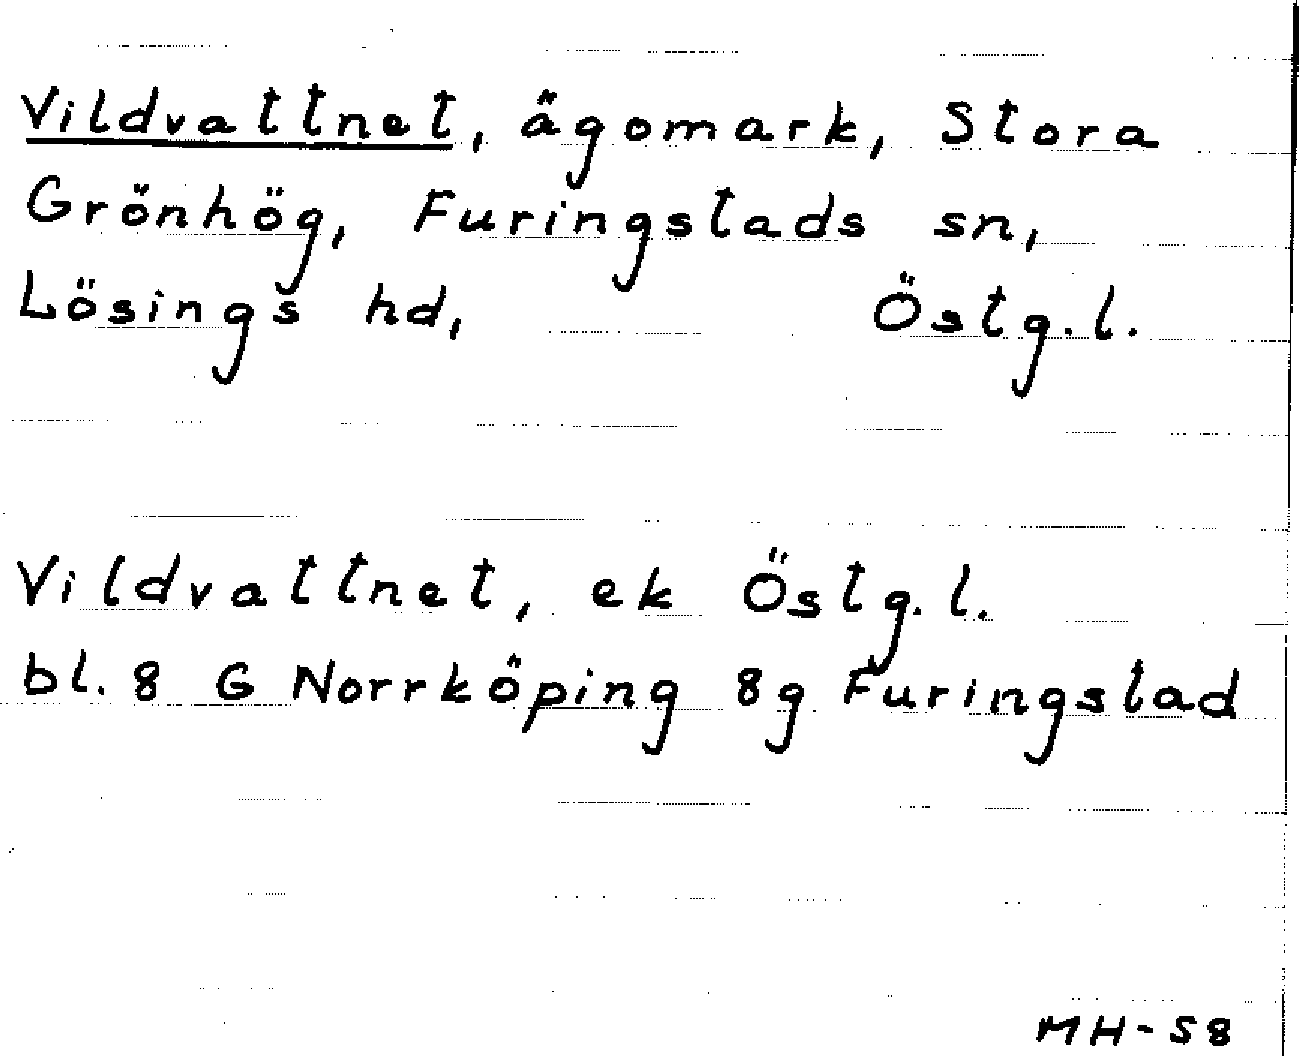 Vildvattnet, ägomark, Stora
Grönhög, Furingstads sn,
Lösings hd, Östg.l.
Vildvattnet, ek Östg.l.
bl. 8 G Norrköping 8g Furingstad
MH-58